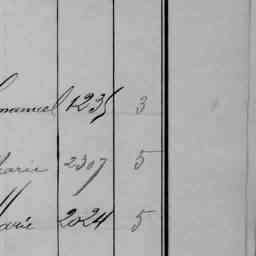 1235 3
arie 2307 5
"
arie 2024 5